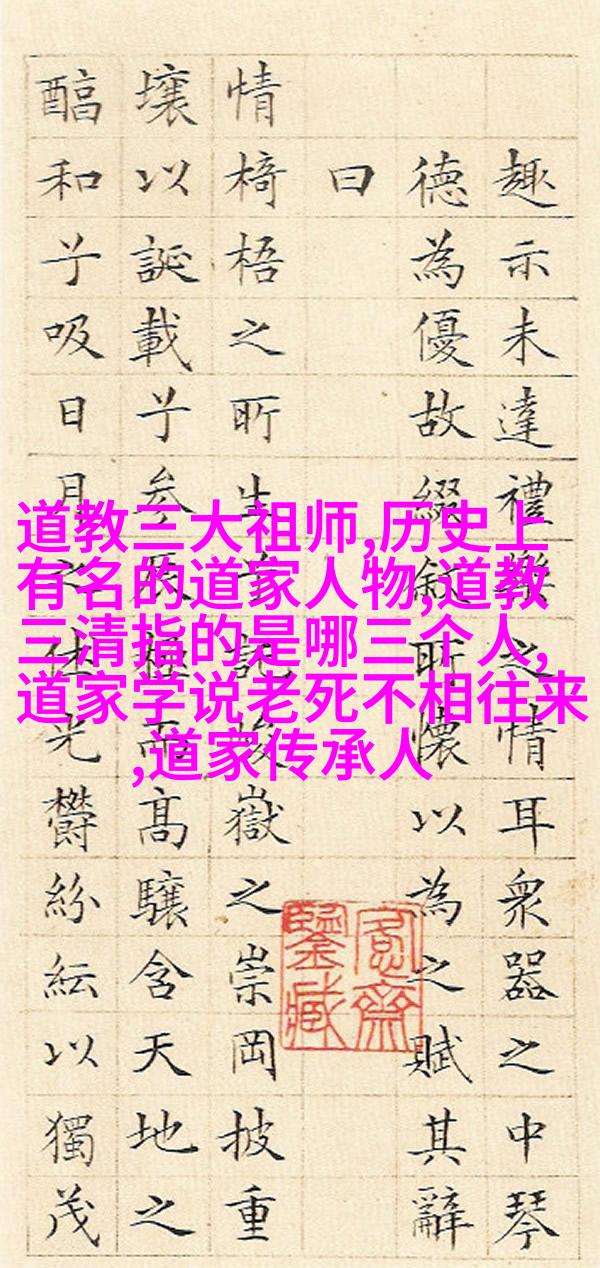 道教三大祖师,历史上
有名的道家人物,道教
三清指的是哪三个人,
道家学说老死不相往来
,道家传承人
趣示未達禮樂之情耳衆器之中琴
德為優故綴敘所懷以為之賦其辭
曰
情椅梧之所生兮託峻嶽之崇岡披重
壤以誕載兮參辰極而高驤含天地之
醕和兮吸日月之休光鬱紛紜以獨茂